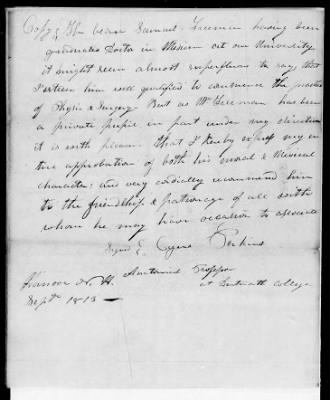 Copy, The bearer Samuel Freeman having been
graduated Doctor in Medicine at our University
it might seem almost superfluous to say that
I esteem him well qualified to commence the practice
of Physic & Surgery. But as Mr Freeman has been
a private pupil in part under my direction
it is with pleasure that I hereby express my en
tire approbation of both his moral & Medical
character: and very cordially recommend him
to the friendship & patronage of all with
whom he may have occasion to associate
Signed Cyrus Perkins
Anatomical Professor
Hanover N. H. at Dartmouth College
Sept. 1813 —